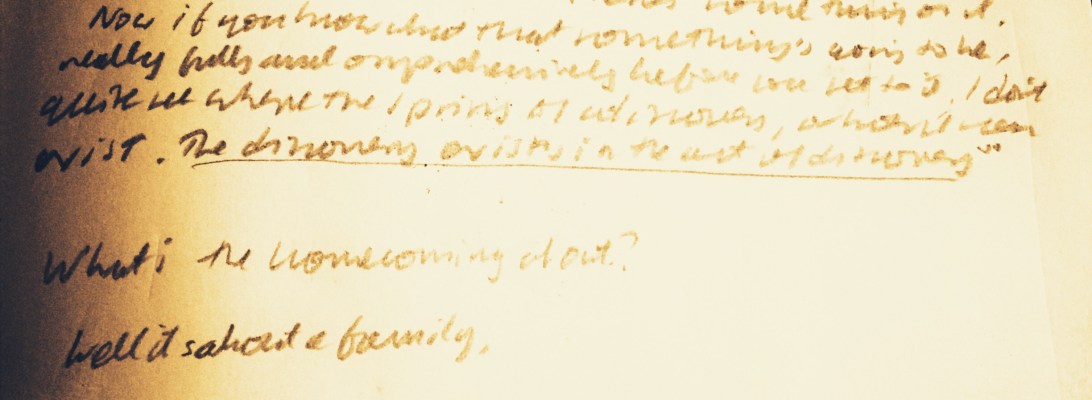 something or it.
Now if you know what that something's going to be,
really fully and comprehensively before you get to it, I don't
quite see where the of discovery, can
exist. The discovery exists in the act of discovery"
What's the Homecoming about?
Well it's about a family.